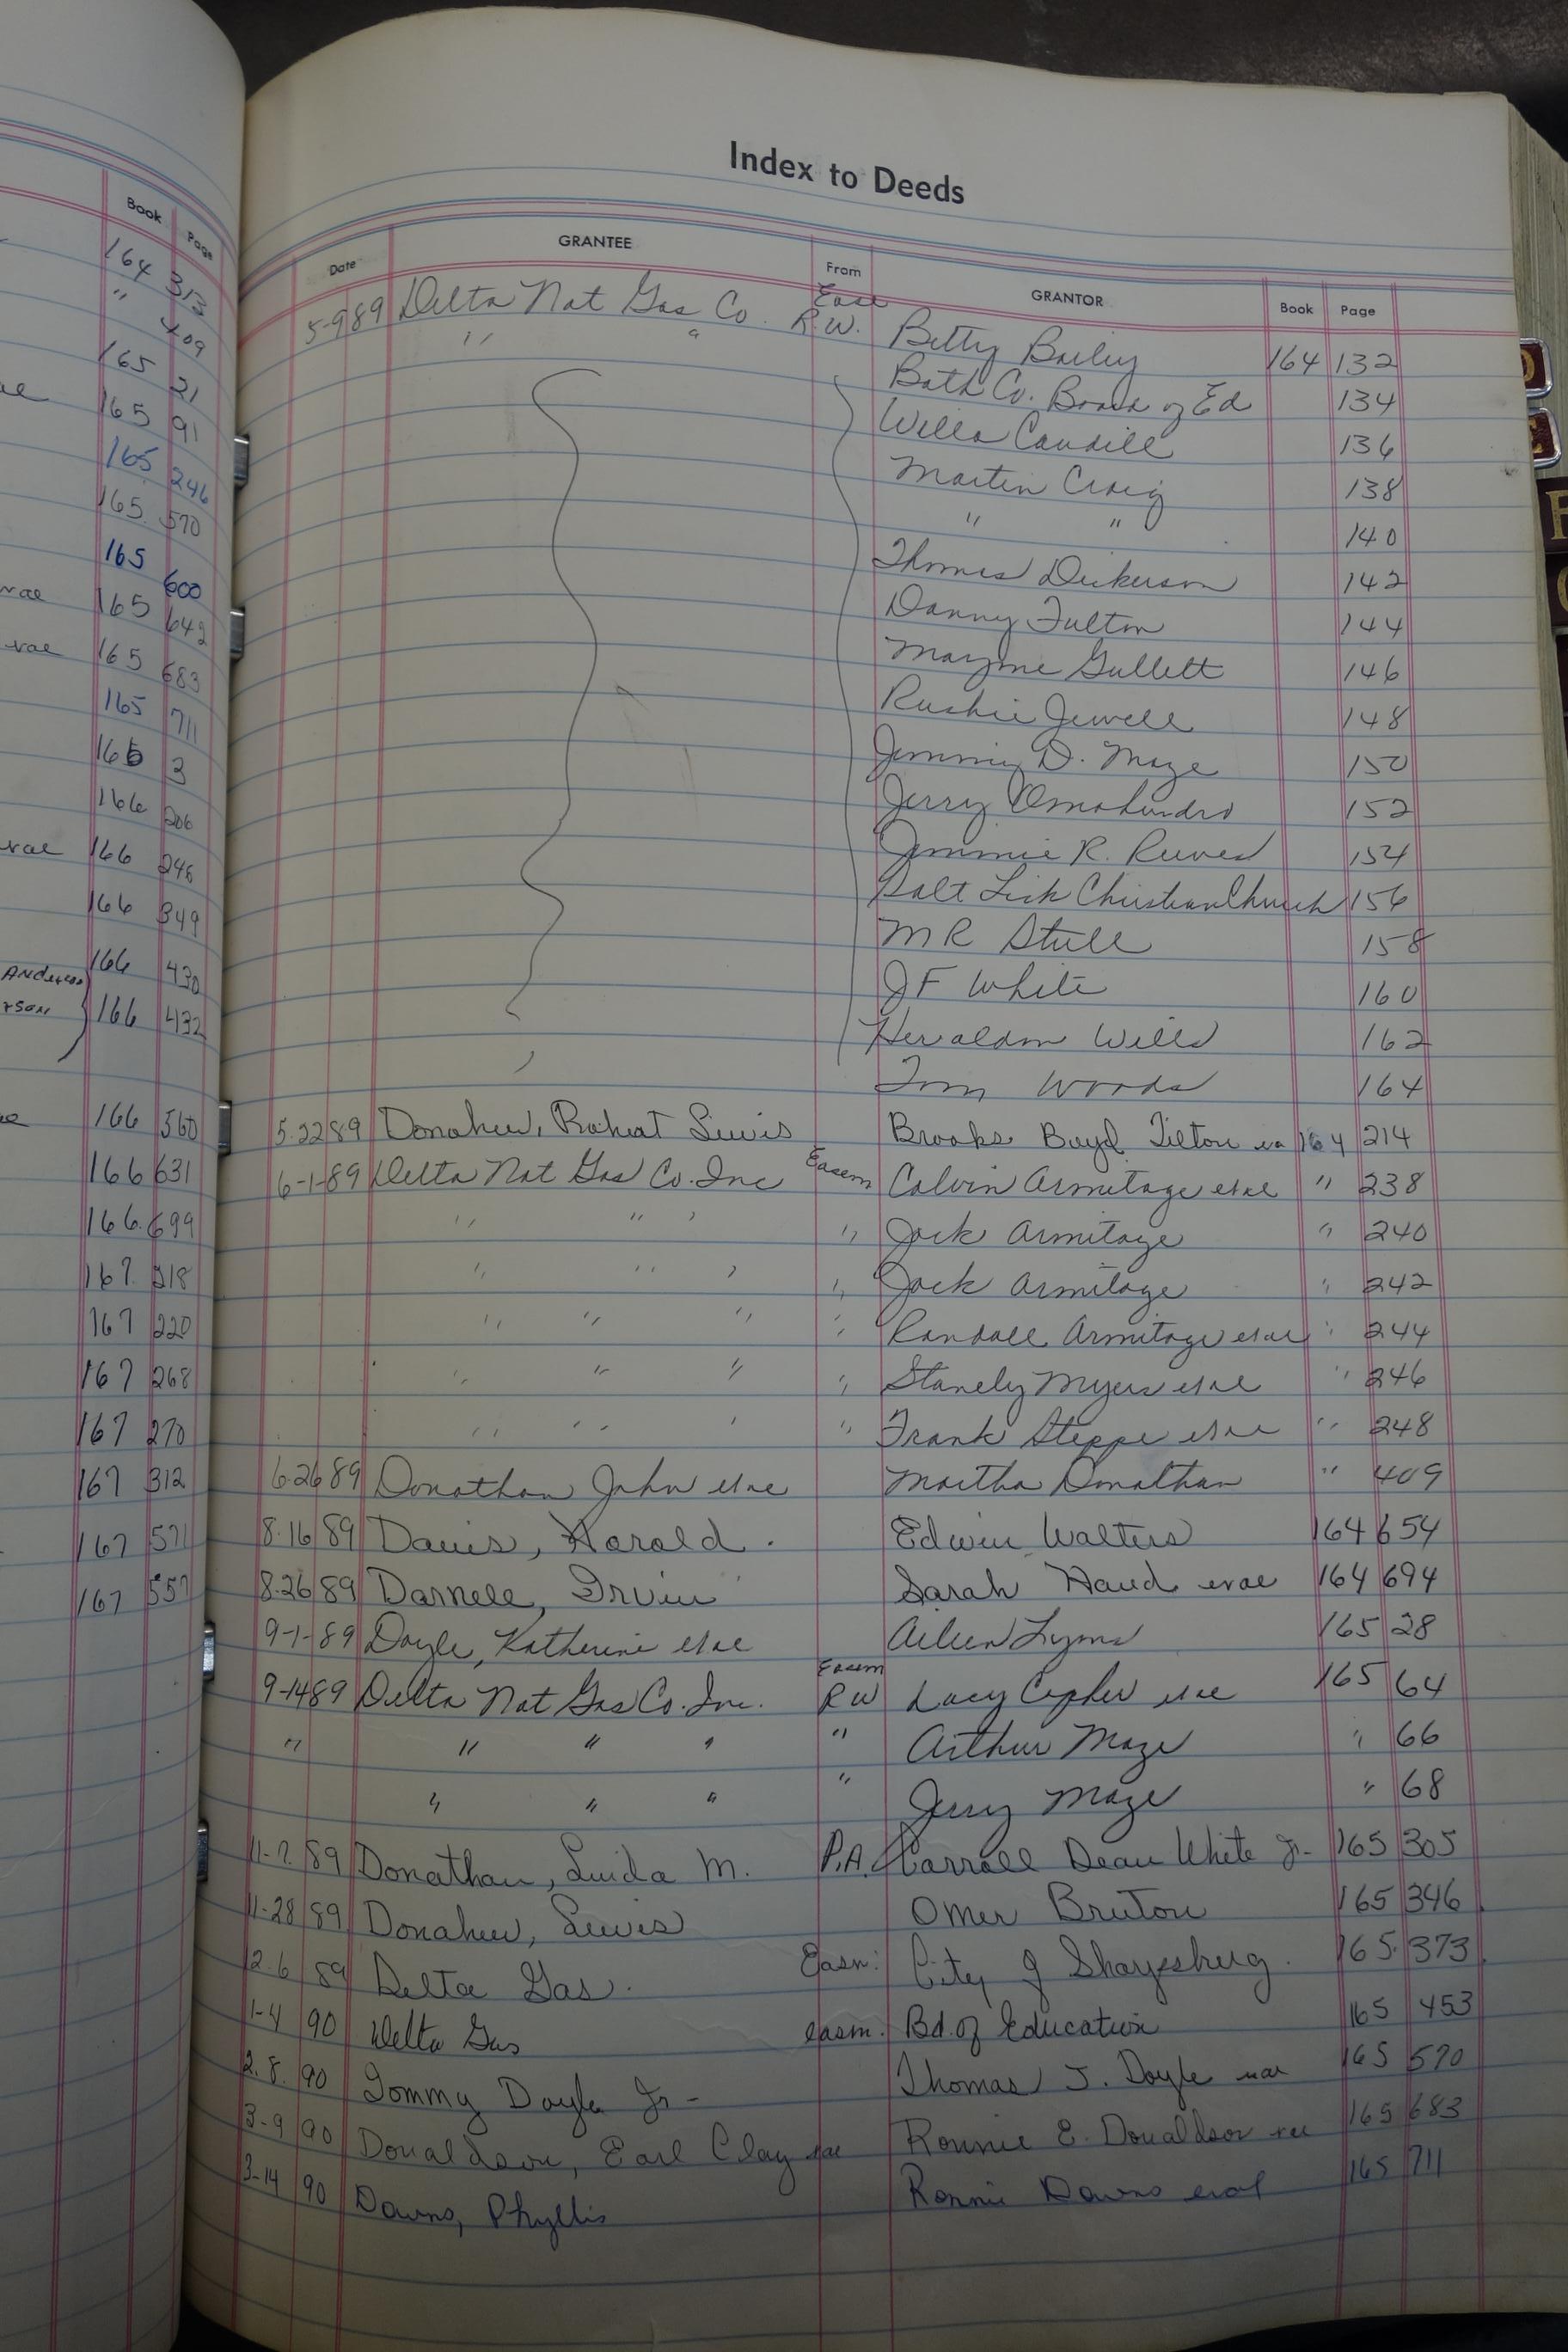 Book Page
164 313
" 409
165 21
165 91
165 246
165 570
165 600
165 642
165 683
165 711
166 3
166 206
166 248
166 349
166 430
166 432
166 560
166 631
166 699
167 218
167 220
167 268
167 270
167 312
167 571
167 557
Index to Deeds
Date GRANTEE From GRANTOR Book Page
5-9 89 Delta Nat Gas Co. Ease R.W. Betty Bailey 164 132
" " Bath Co. Board of Ed 134
Willa Caudill 136
Martin Craig 138
" " 140
Thomas Dickerson 142
Danny Fulton 144
Mayme Gullett 146
Rushie Jewell 148
Jimmy D. Maze 150
Jerry Omohundro 152
Jimmie R. Reeves 154
Salt Lick Christian Church 156
M R Stull 158
J F White 160
Heraldon Wills 162
Tom Woods 164
5.22 89 Donahew, Robert Lewis Brooks Boyd Tilton 164 214
6-1-89 Delta Nat Gas Co. Inc Easem Calvin Armitage etal " 238
" " " " Jack Armitage " 240
" " " " Jack Armitage " 242
" " " " Randall Armitage etal " 244
" " " " Stanely Myers etal " 246
" " " " Frank Steppe etal " 248
6.26 89 Donathan John etal Martha Donathan " 409
8.16 89 Davis, Harold. Edwin Walters 164 654
8.26 89 Darnell, Irvin Sarah Hand etal 164 694
9-1-89 Doyle, Katherine etal Aileen Lyons 165 28
9-14 89 Delta Nat Gas Co. Inc. Easem R W Lacy Copher etal 165 64
" " " " " Arthur Maze " 66
" " " " Jerry Maze " 68
11-7. 89 Donathan, Linda M. P.A. Carroll Dean White Jr- 165 305
11-28 89 Donahew, Lewis Omer Bruton 165 346
12.6 89 Delta Gas. Easm: City of Sharpsburg. 165. 373
1-4 90 Delta Gas easm. Bd. of Education 165 453
2.8. 90 Tommy Doyle Jr- Thomas J. Doyle 165 570
3-9 90 Donaldson, Earl Clay Ronnie E. Donaldson 165 683
3-14 90 Downs, Phyllis Ronnie Downs etal 165 711